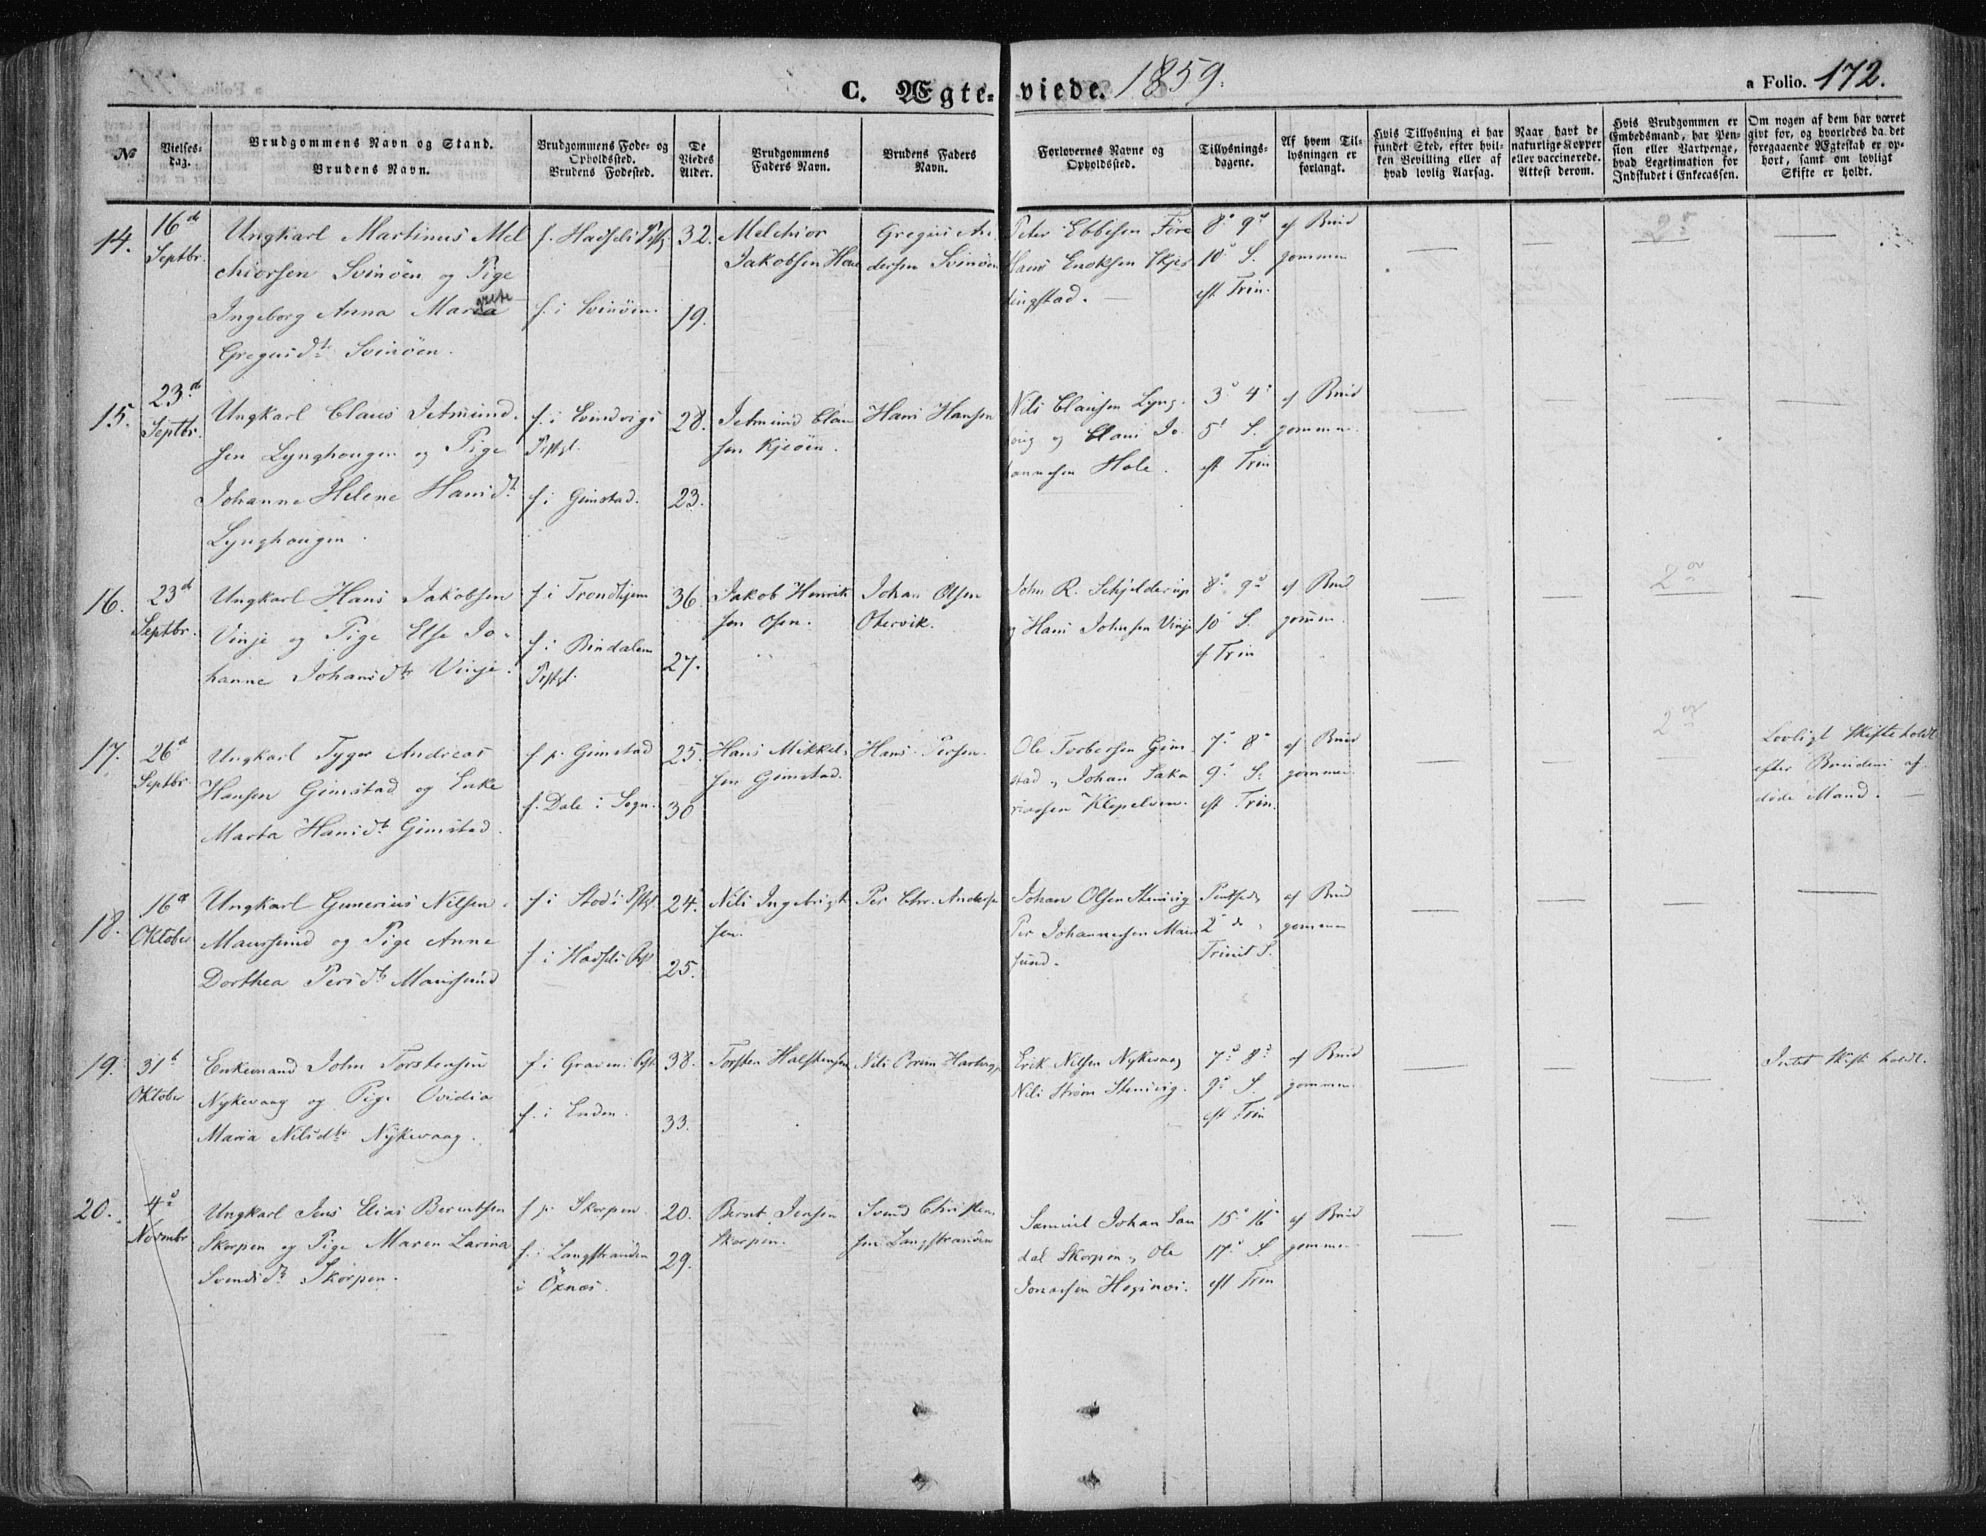 C. Ægte-viede. 1859.
a Folio. 172.
No
Vielses-
dag.
Brudgommens Navn og Stand.
Brudens Navn.
Brudgommens Føde- og
Opholdssted.
Brudens Fødested.
De
Viedes
Alder.
Brudgommens
Faders Navn.
Brudens Faders
Navn.
Forlovernes Navne og
Opholdssted.
Tillysnings-
dagene.
Af hvem Til-
lysningen er
forlangt.
Hvis Tillysning ei har
fundet Sted, efter hvil-
ken Bevilling eller af
hvad lovlig Aarsag.
Naar havt de
naturlige Kopper
eller vaccinerede.
Attest derom.
Hvis Brudgommen er
Embedsmand, har Pen-
sion eller Vartpenge,
hvad Legitimation for
Indskudet i Enkecassen.
Om nogen af dem har været
givt for, og hvorledes da det
foregaaende Ægteskab er op-
hørt, samt om lovligt
Skifte er holdt.
14.
16d
Septbr.
Ungkarl Martinus Mel
chiorsen Svinöen og Pige
Ingeborg Anna Margrete
Gregusdt Svinöen.
f. Hadsels Pstg
f. i Svinöen.
32.
19.
Melchior
Jakobsen
Gregus An
dersen Svinöen
Peter Ebbesen Före
Hans Enoksen Skjer
dingstad.
8d 9d
10d S.
eft Trin.
af Brud
gommen
15.
23d
Septbr.
Ungkarl Claus Jetmund
sen Lynghougen og Pige
Johanne Helene Hansdt
Lynghougen.
f. i Evindvigs
Pstgl.
f i Gimstad.
28.
23.
Jetmund Clau
sen Kjeöen.
Hans Hansen
Nils Clausen Lyng-
og Claus Jo
hannesen Hole.
3d 4d
5t S.
eft Trin
af Brud
gommen.
16.
23d
Septbr.
Ungkarl Hans Jakobsen
Vinje og Pige Else Jo-
hanne Johansdt Vinje.
f. i Trondhjem
f. i Bindalens
Pstgl.
36.
27.
Jakob Henrik
sen Osen.
Johan Olsen
Otervik.
John R. Schjelderup
og Hans Johnsen Vinje
8d 9d
10d S.
ef Trin
af Brud
gommen.
17.
26d
Septbr.
Ungkarl Tyger Andreas
Hansen Gimstad og Enke
Marta Hansdt Gimstad.
f p. Gimstad
f. Dale i Sogn.
25.
30
Hans Mikkel-
sen Gimstad.
Hans Persen.
Ole Torbersen Gim-
stad, Johan Saka
riassen Klepelven.
7d 8d
9d S.
eft Trin.
af Brud
gommen
Lovligt Skifte holdt
efter Brudens af-
döde Mand.
18.
16d
Oktober
Ungkarl Gunerius Nilsen
Maursund og Pige Anne
Dorthea Persdt Maursund
f i Stods Pstgl
f i Hadsels Pst
24.
25.
Nils Ingebrigt
sen.
Per Chr. Anders
Johan Olsen Stenvig
Per Johannesen Maur
sund.
2d
Trinit S.
af Brud
gommen
19.
31t
Oktober
Enkemand John Torstensen
Nykevaag og Pige Ovidia
Maria Nilsdt Nykevaag.
f. i Gravens Pst
f. i
38.
33.
Torsten Halstensen
Nils Brun Hartvig
Erik Nilsen Nykevaag
Nils Ström Stenvig.
7d 8d
9d S.
eft Trin
af Brud
gommen.
Intet Skifte holdt.
20.
4d
Novmbr
Ungkarl Jens Elias Berentsen
Skorpen og Pige Maren Larina
Svendsdt Skorpen.
f p. Skorpen.
f. i Langstranden
i Öxnæs.
20.
29.
Bernt Jensen
Skorpen.
Svend Christen
sen Langstranden
Samuel Johan San
dal Skorpen, Ole
Jonassen
15d 16d
17d S.
eft Trin
af Brud
gommen